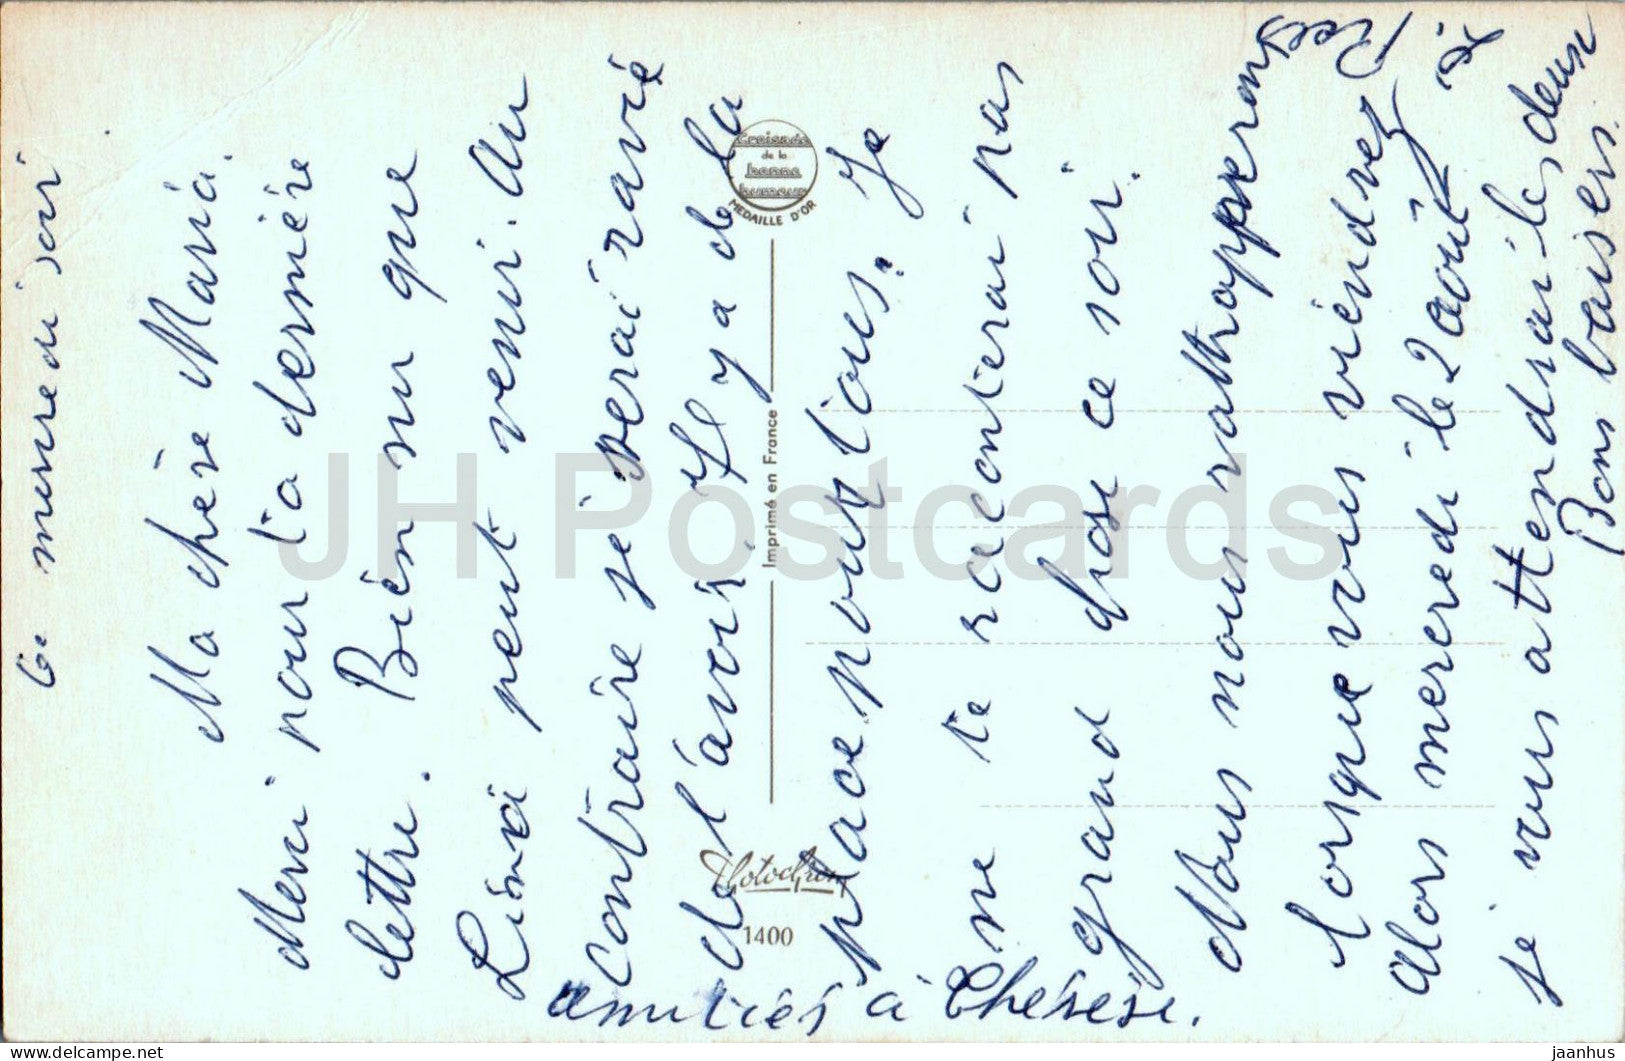 Ce mercredi soir
Ma chère Maria.
Merci pour ta dernière
lettre. Bien su que
peut venir. Au
contraire je serai ravie
de l'avoir. Il y a de la
place pour tous. Je
ne te raconterai pas
grand chose ce soir.
Nous nous rattapperens
lorsque vous viendrez
alors mercredi le 2 août
je vous attendrai les deux
Bons baisers.
amitiés à Thérèse.
Croisade
de la
bonne
humeur
MEDAILLE D'OR
Imprimé en France
Photochrom
1400
JH Postcards
delcampe.net
jaanhus